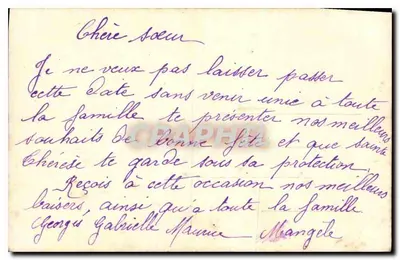 Chère sœur
Je ne veux pas laisser passer
cette date sans venir unie à toute
la famille te présenter nos meilleurs
souhaits de bonne fête et que sainte
Thérèse te garde sous sa protection,
Reçois à cette occasion nos meilleurs
baisers, ainsi qu'a toute la famille
Georges Gabrielle Maurice Mangèle